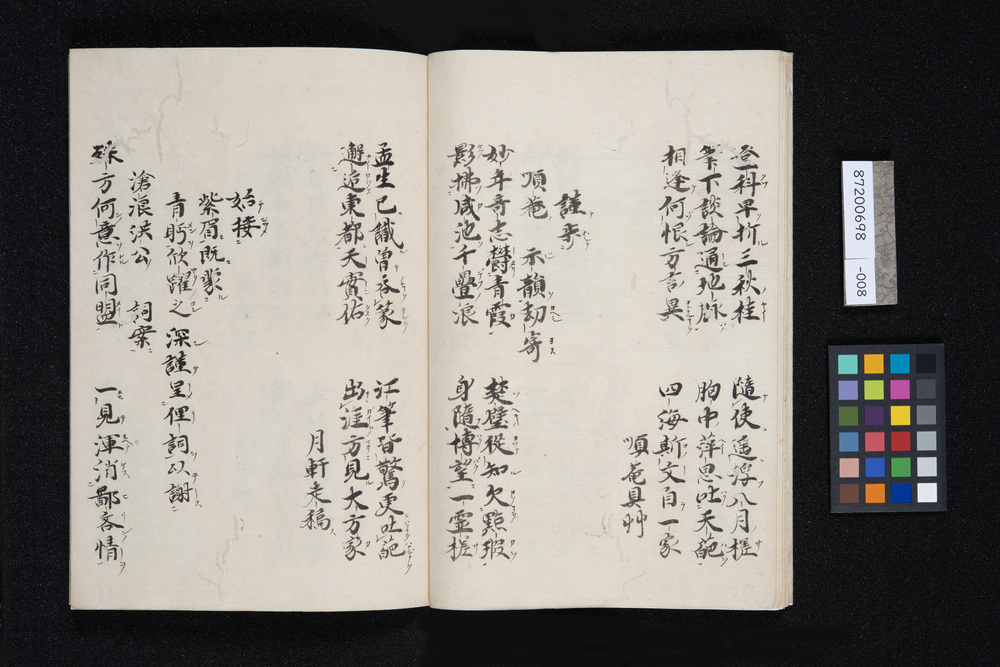 登科早折三秋桂 隨使遥浮八月槎
筆下談論通地脉 胸中萍思吐天葩
相逢何恨方言異 四海斯文自一家
順菴具艸
謹步
順菴 示韻却寄
妙年奇志欝青霞 楚璧従知欠點瑕
影拂咸池千疊浪 身隨博望一霊槎
孟生已識曽吞篆 江筆皆驚更吐葩
邂逅東都天實佑 出涯方見大方家
月軒走稿
始接
紫眉既蒙
青眄欣躍之 深謹呈俚詞以謝
滄浪洪公 詞案
殊方何意作同盟 一見渾消鄙吝情
87200698
-008